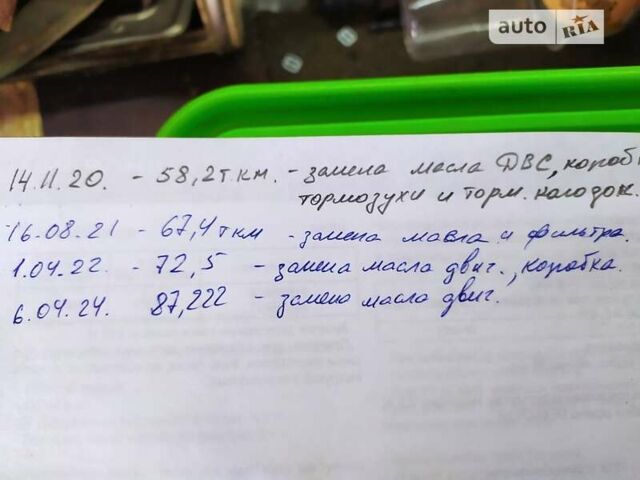 auto RIA
14.11.20. - 58,2 т км. - замена масла ДВС, короб
тормозухи и торм. колодок.
16.08.21 - 67,4 т км - замена масла и фильтра.
1.04.22. - 72,5 - замена масла двиг., коробка.
6.04.24. 87,222 - замена масла двиг.